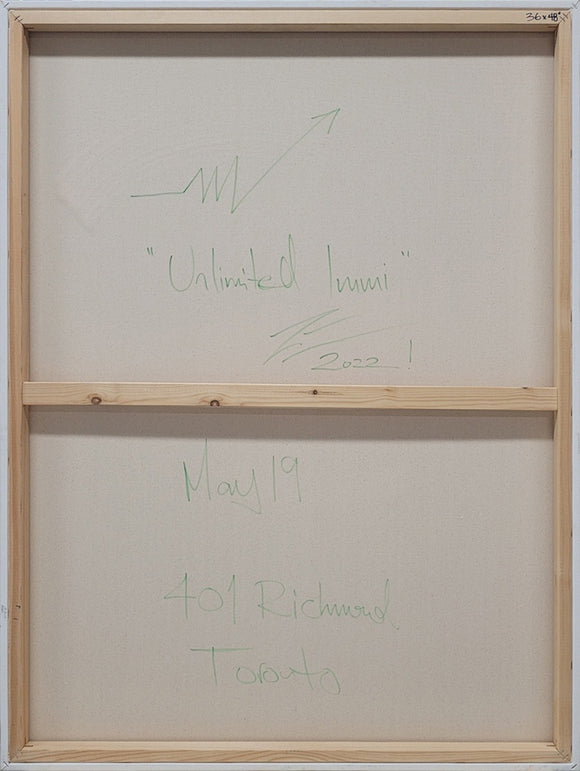 36x48"
"Unlimited Immi"
2022!
May 19
401 Richmond
Toronto